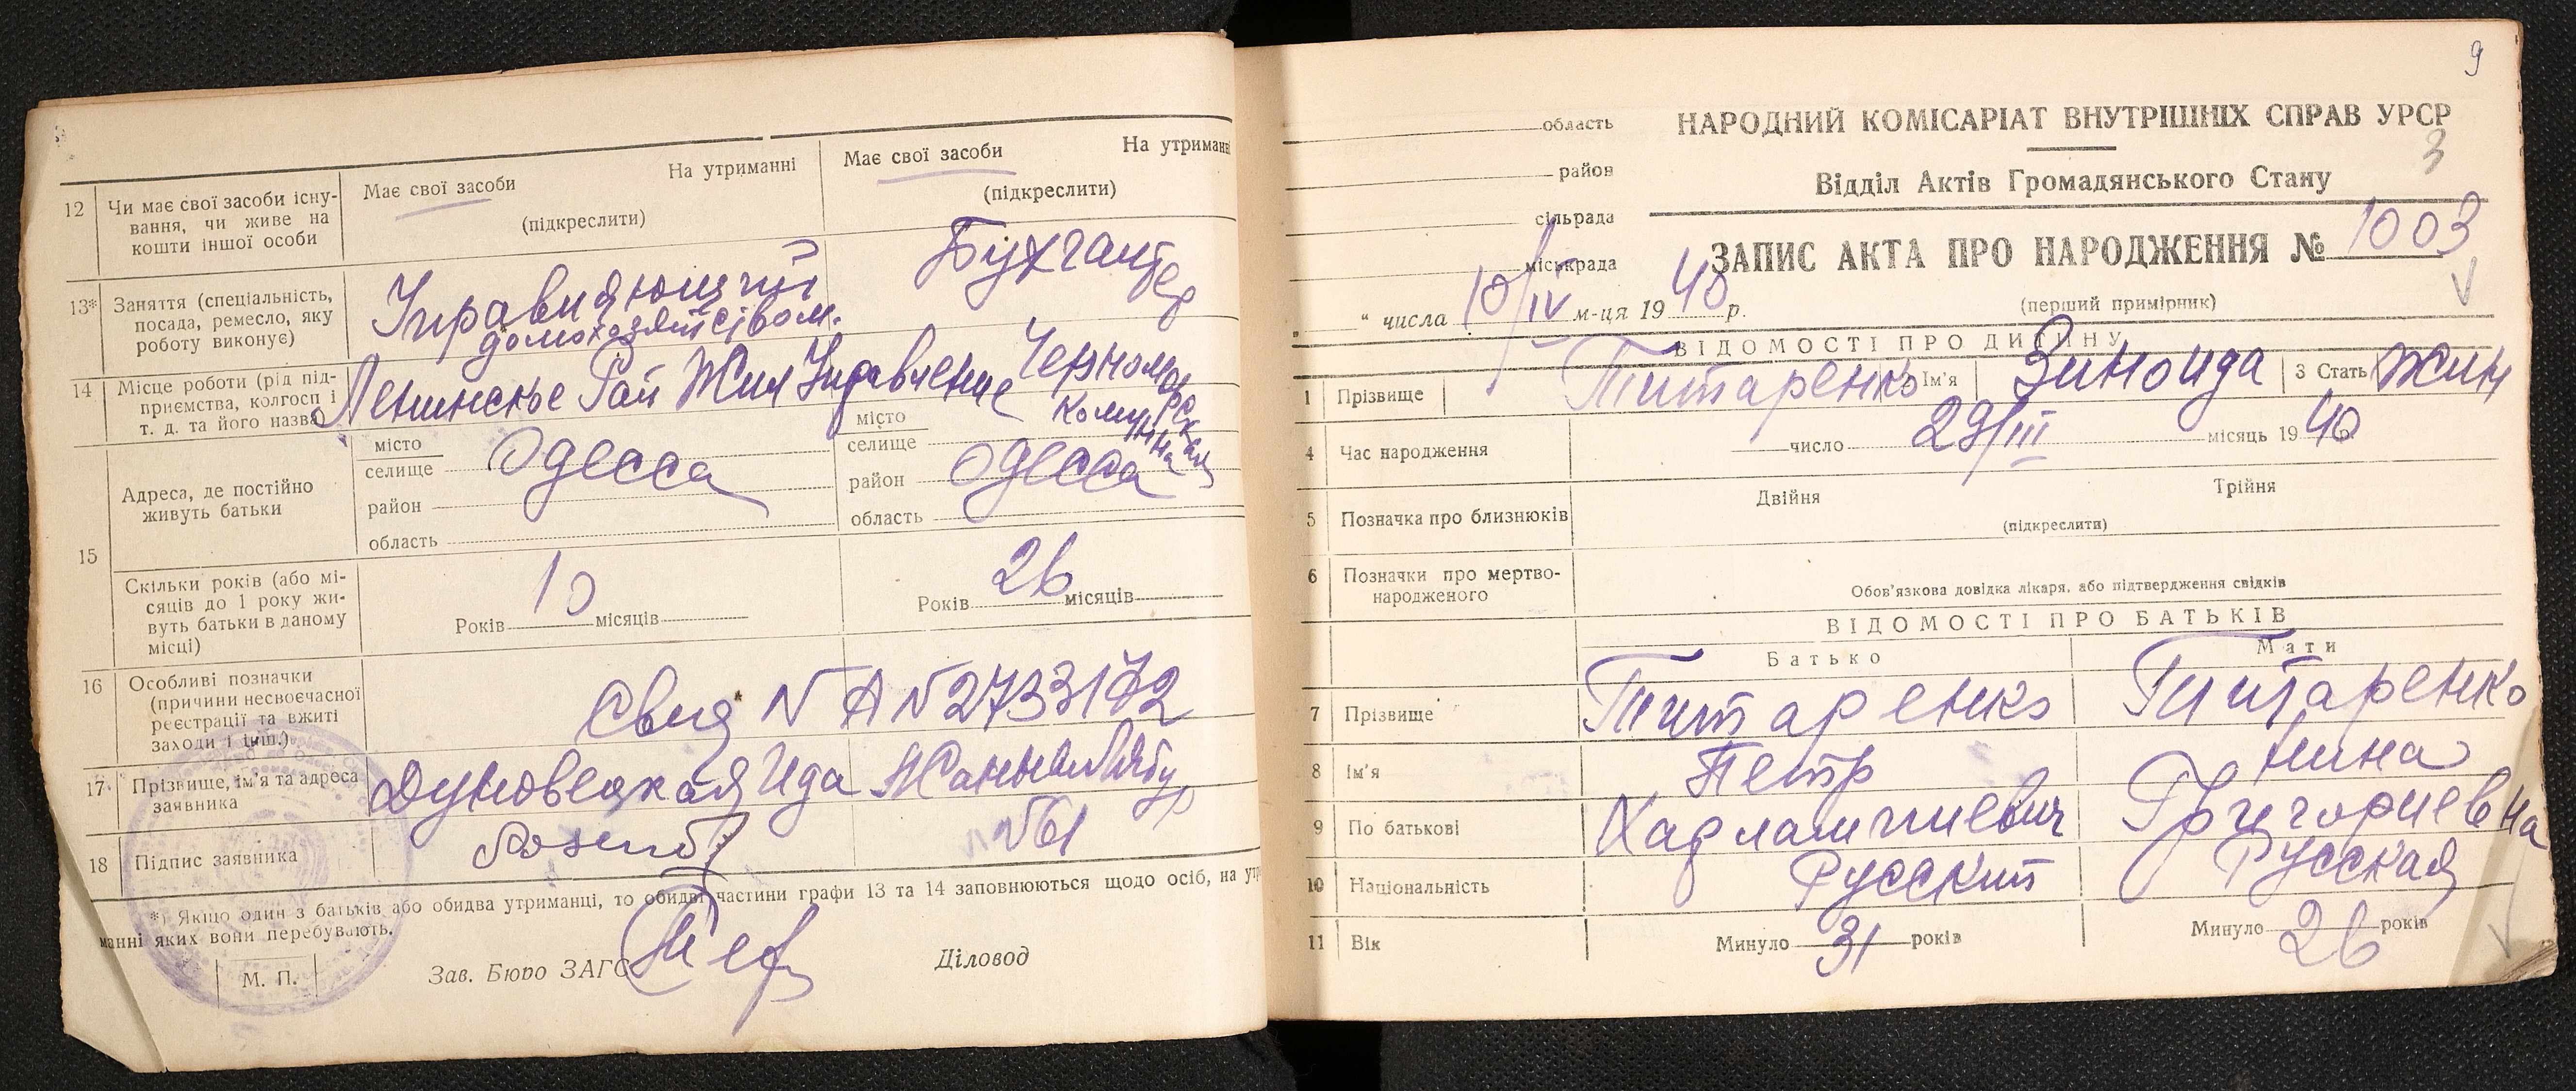 12 Чи має свої засоби існу-
вання, чи живе на
кошти іншої особи
Має свої засоби На утриманні
(підкреслити)
Має свої засоби На утриманні
(підкреслити)
13* Заняття (спеціальність,
посада, ремесло, яку
роботу виконує)
Управляющий
домохозяйством.
Бухгалтер
14 Місце роботи (рід під-
приємства, колгосп і
т. д. та його назва)
Ленинское Рай Жил Управление
Черноморская
Коммуна
15 Адреса, де постійно
живуть батьки
місто
селище Одесса
район
область
місто
селище
район Одесса
область
Скільки років (або мі-
сяців до 1 року жи-
вуть батьки в даному
місці)
Років 10 місяців
Років 26 місяців
16 Особливі позначки
(причини несвоєчасної
реєстрації та вжиті
заходи і інш.)
Свид N А N 2733172
17 Прізвище, ім'я та адреса
заявника
Ида
18 Підпис заявника
№61
*) Якщо один з батьків або обидва утриманці, то обидві частини графи 13 та 14 заповнюються щодо осіб, на утри-
манні яких вони перебувають.
М. П.
Зав. Бюро ЗАГС
Діловод
9
область
район
сільрада
міськрада
" числа 10/IV м-ця 1940 р.
НАРОДНИЙ КОМІСАРІАТ ВНУТРІШНІХ СПРАВ УРСР
3
Відділ Актів Громадянського Стану
ЗАПИС АКТА ПРО НАРОДЖЕННЯ № 1003
(перший примірник)
ВІДОМОСТІ ПРО ДИТИНУ
1 Прізвище Титаренко 2 Ім'я Зиноида 3 Стать Жин
4 Час народження число 29/III місяць 1940 р.
5 Позначка про близнюків Двійня Трійня
(підкреслити)
6 Позначки про мертво-
народженого
Обов'язкова довідка лікаря, або підтвердження свідків
ВІДОМОСТІ ПРО БАТЬКІВ
Батько Мати
7 Прізвище Титаренко Титаренко
8 Ім'я Петр Нина
9 По батькові Харлампиевич Григориевна
10 Національність Русский Русская
11 Вік Минуло 31 років Минуло 26 років